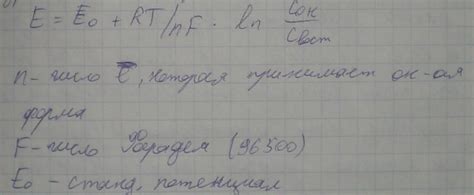 E = E₀ + RT/nF · ln Cок/Cвост
n - число ē, которая принимает ок-ая
форма
F - число Фарадея (96500)
E₀ - станд. потенциал